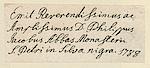 Emit Reverendissimus ac
Amplissimus D. Philippus
Jacobus Abbas Monasterii
S. Petri in Silva nigra. 1778